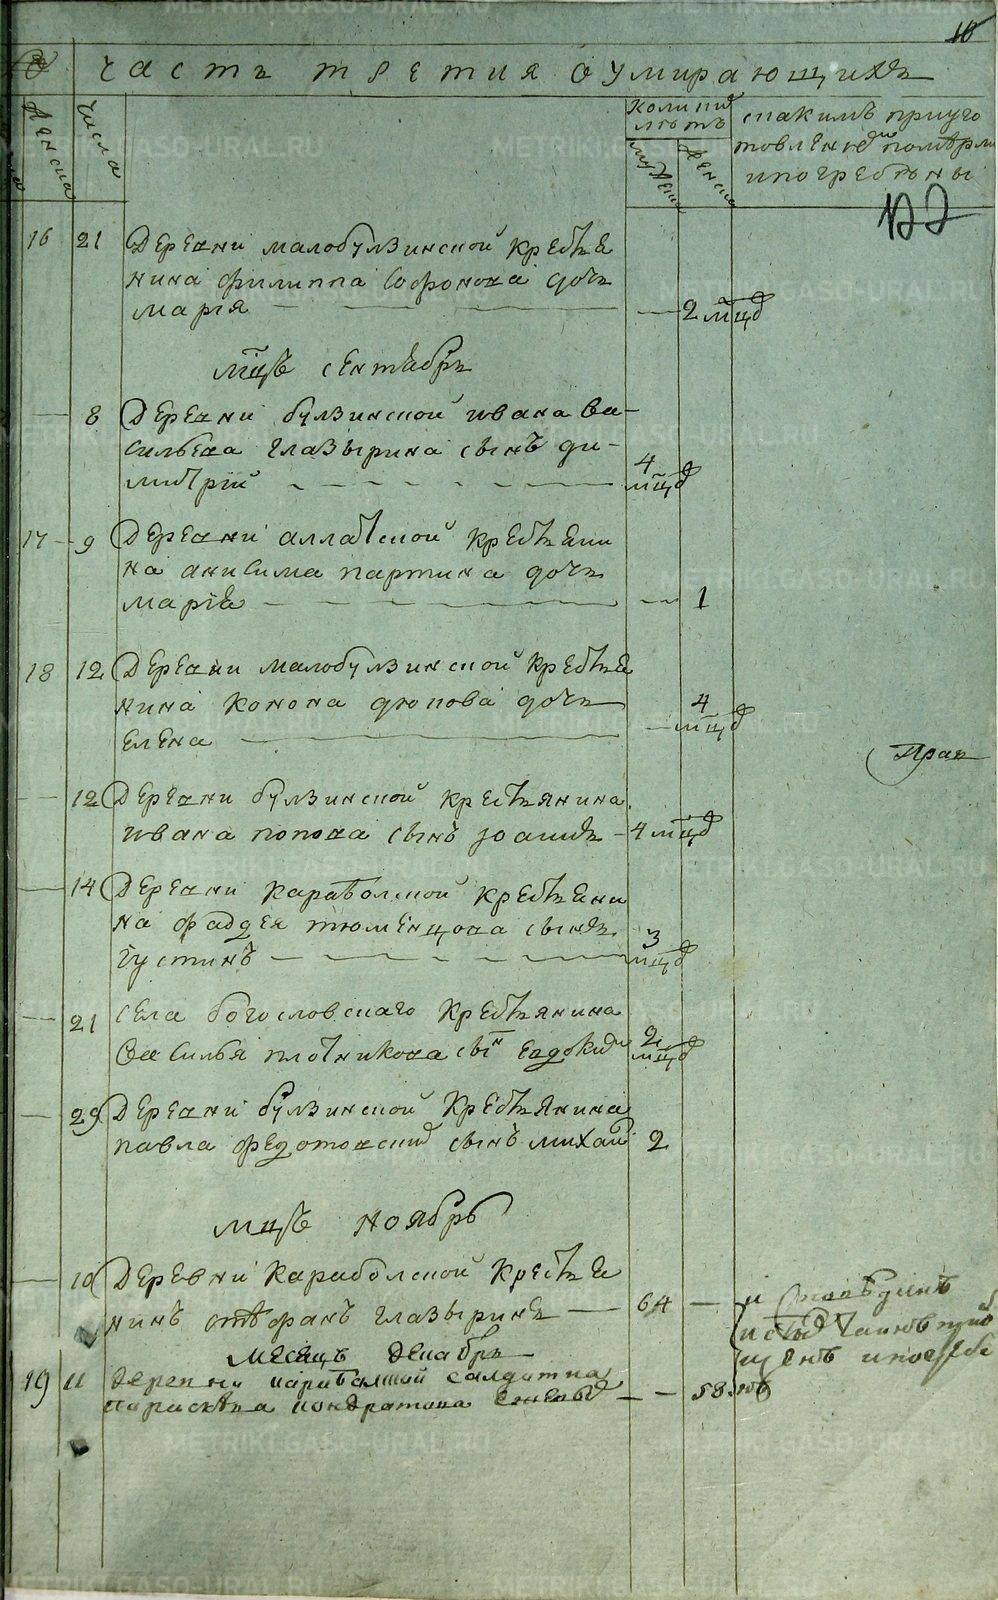 10
часть третия оумирающихъ
женска
числа
колики
лѣтъ
мужеска
женска
с какимъ приуго
товлениемъ померли
и погребены
122
16 21 Деревни малобулзинской кресть
нина филиппа Софонова дочь
марія 2 мцд
мцъ сентябрь
8 Деревни булзинской ивана Ва-
сильева глазырина сынъ ди-
митрій 4 мцд
17 9 Деревни аллакской крестьяни
на анисима партина дочь
маріѧ 1
18 12 Деревни малобулзинской крестья
нина конона дюпова дочь
елена 4 мцд
12 Деревни булзинской крестьянина
ивана попова сынъ 4 мцд
14 Деревни караболской крестьяни
на фаддея тюменцова сынъ
іустинъ 3 мцд
21 села богословскаго крестьянина
Василья плотникова сынъ евдоким 2 мцд
29 Деревни булзинской крестьянина
павла федотовских сынъ михаил 2
мцъ ноябрь
10 Деревни караболской крестья
нинъ стефанъ глазыринъ 64
месяцъ декабрь
19 11 деревни караболской салдатка
параскева кондратова 58